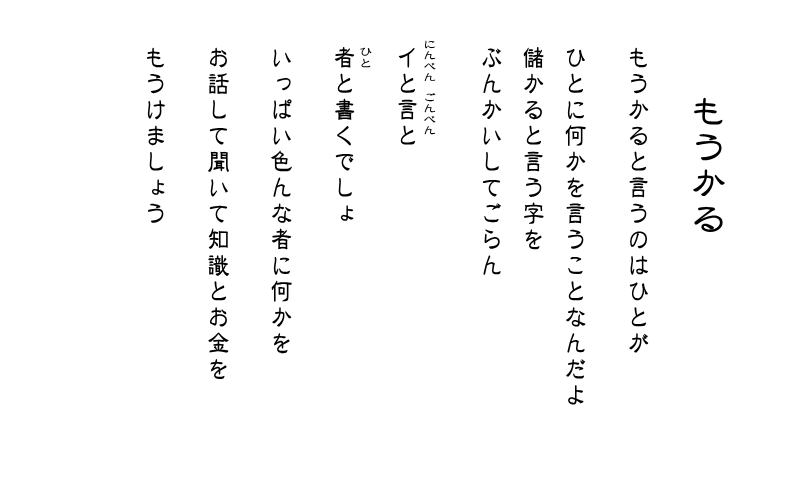 もうかる
もうかると言うのはひとが
ひとに何かを言うことなんだよ
儲かると言う字を
ぶんかいしてごらん
にんべん ごんべん
イと言と
ひと
者と書くでしょ
いっぱい色んな者に何かを
お話して聞いて知識とお金を
もうけましょう